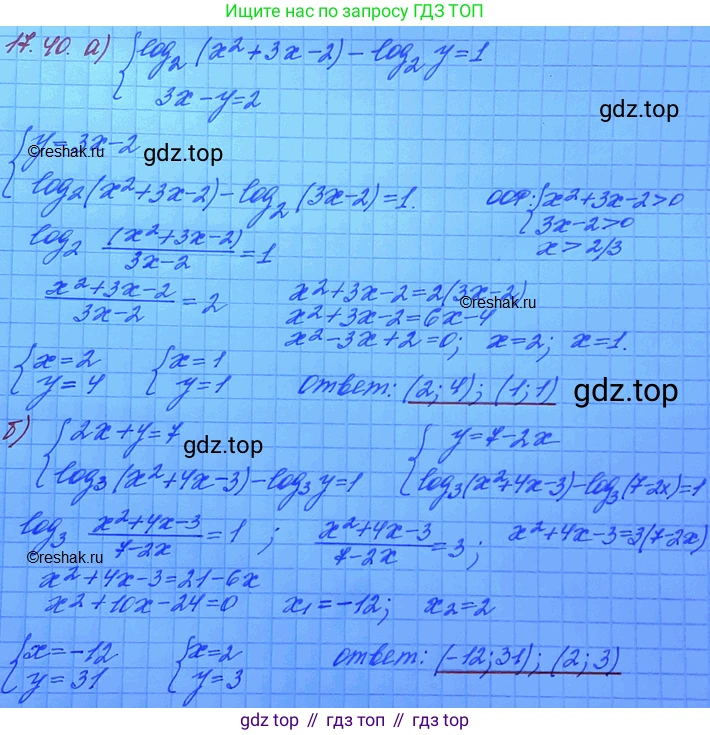 Ищите нас по запросу ГДЗ ТОП
17.40. а) { log₂ (x²+3x-2) - log₂ y=1
3x-y=2
gdz.top
{ y=3x-2
©reshak.ru
gdz.top
log₂(x²+3x-2)-log₂ (3x-2)=1.
ООФ: { x²+3x-2>0
3x-2>0
x>2/3
log₂ (x²+3x-2)/(3x-2) = 1
(x²+3x-2)/(3x-2) = 2
x²+3x-2=2(3x-2)
©reshak.ru
x²+3x-2=6x-4
x²-3x+2=0; x=2; x=1.
{ x=2 { x=1
y=4 y=1
ответ: (2; 4); (1; 1)
gdz.top
б) { 2x+y=7
gdz.top
{ y=7-2x
log₃ (x²+4x-3)-log₃ y=1
log₃(x²+4x-3)-log₃(7-2x)=1
log₃ (x²+4x-3)/(7-2x) = 1 ; (x²+4x-3)/(7-2x) = 3 ; x²+4x-3=3(7-2x)
©reshak.ru
x²+4x-3=21-6x
x²+10x-24=0 x₁=-12; x₂=2
{ x=-12 { x=2
y=31 y=3
ответ: (-12; 31); (2; 3)
gdz top // гдз топ // gdz.top